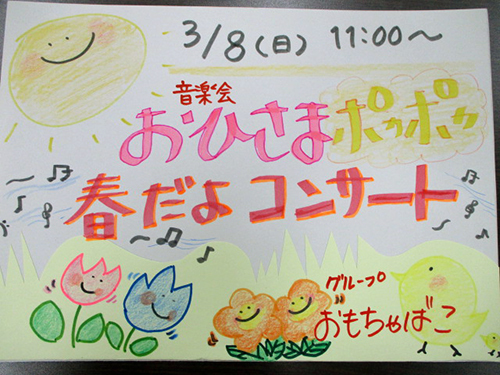 3/8(日) 11:00～
音楽会
おひさまポカポカ
春だよコンサート
グループ
おもちゃばこ